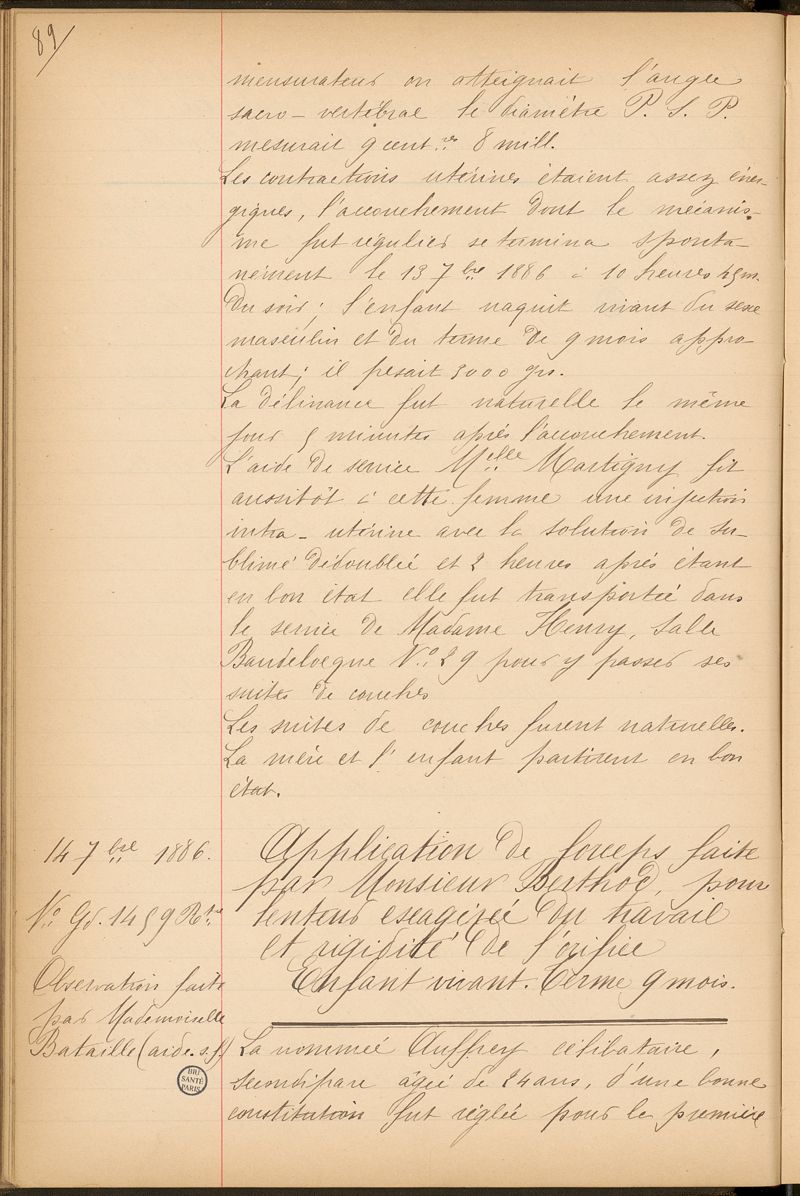 89
mensurateur on atteignait l'angle
sacro-vertébral le diamètre P. S. P.
mesurait 9 cent.res 8 mill.
Les contractions utérines étaient assez éner-
giques, l'accouchement dont le mécanis-
me fut régulier se termina sponta-
nément le 13 7bre 1886 à 10 heures 45m.
du soir; l'enfant naquit vivant du sexe
masculin et du terme de 9 mois appro-
chant; il pesait 3000 grs.
La délivrance fut naturelle le même
jour 5 minutes après l'accouchement.
L'aide de service Melle Martigny fit
aussitôt à cette femme une injection
intra-utérine avec la solution de su-
blimé dédoublée et 2 heures après étant
en bon état elle fut transportée dans
le service de Madame Henry, Salle
Baudelocque No. 29 pour y passer ses
suites de couches
Les suites de couches furent naturelles.
La mère et l'enfant partirent en bon
état.
14 7bre 1886.
No. Gd. 1459 Rtre
Observation faite
par Mademoiselle
Bataille (aide.s.f)
Application de forceps faite
par Monsieur Berthod, pour
lenteur exagérée du travail
et rigidité de l'orifice
Enfant vivant. Terme 9 mois.
La nommée Auffrey célibataire,
secondipare âgée de 24 ans, d'une bonne
constitution fut réglée pour la première
BIU
SANTÉ
PARIS